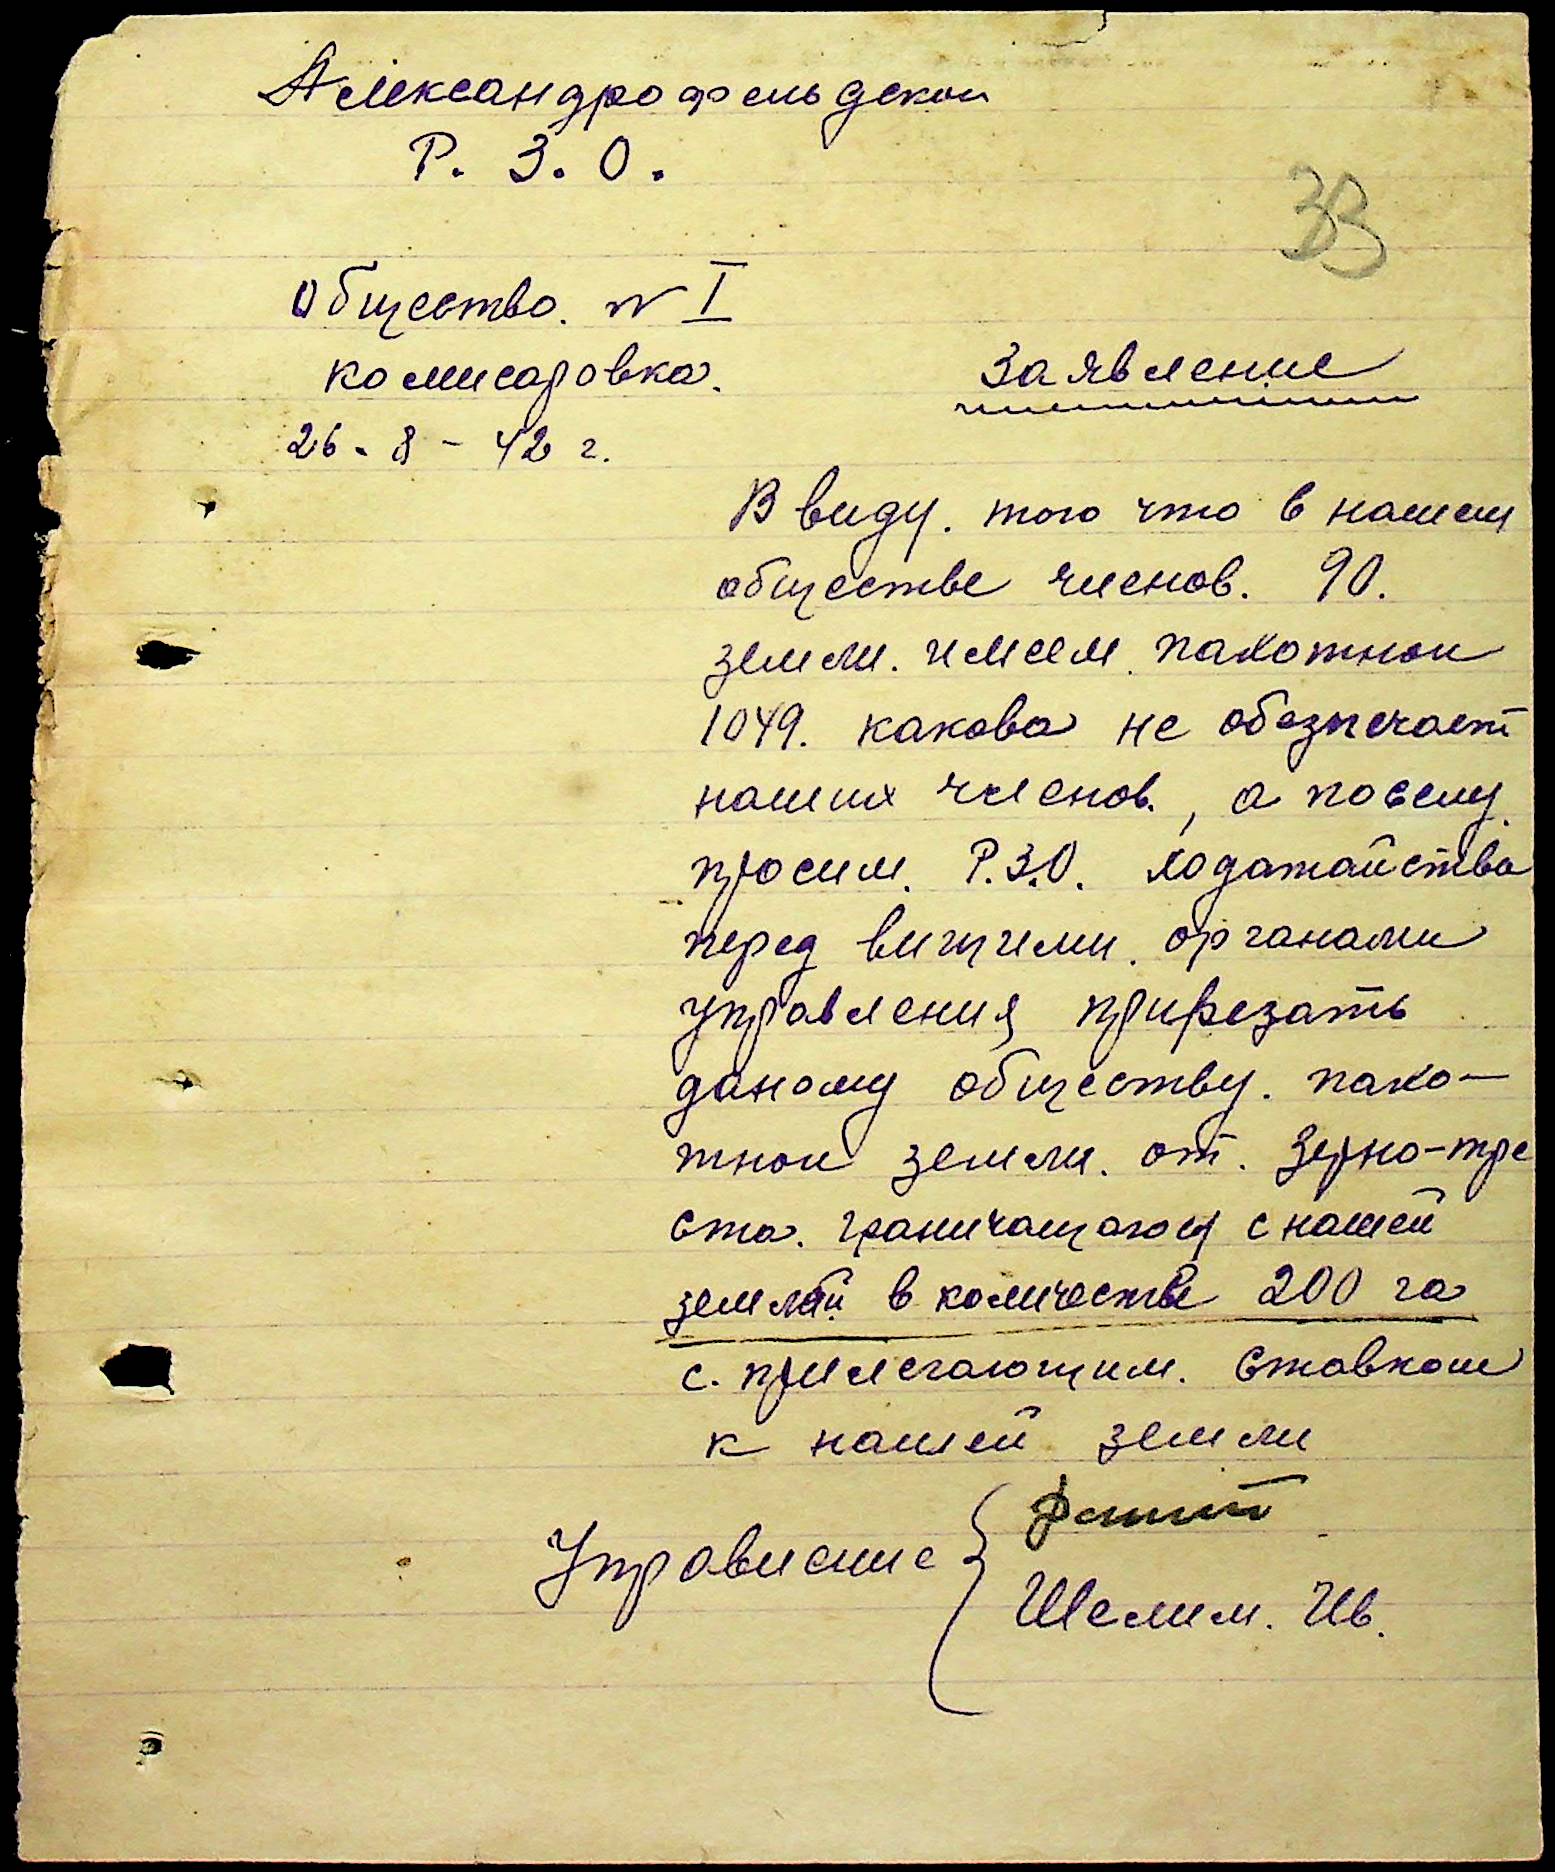 Александрофельдской
Р. З. О.
33
Общество. N I
комисаровка.
26 - 8 - 42 г.
Заявление
В виду. того что в нашем
обществе членов. 90.
земли. имеем. пахотной
1049. какова не обезпечает
наших членов., а посему.
просим. Р.З.О. ходатайства
перед вищими. органами
управления прирезать
даному обществу. пахо-
тной земли. от. Зерно-тре
ста. граничащаюся с нашей
землей в количестве 200 га
с. прилегающим. ставком
к нашей земли
Управление
Шелим. Ив.